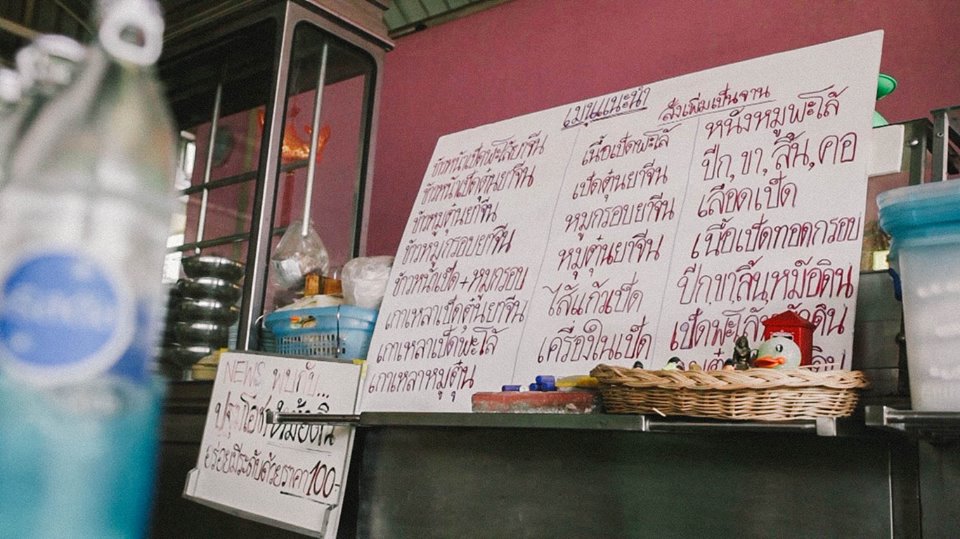 เมนูแนะนำ
ข้าวหน้าเป็ดพะโล้ยาจีน
ข้าวหน้าเป็ดตุ๋นยาจีน
ข้าวหมูตุ๋นยาจีน
ข้าวหมูกรอบยาจีน
ข้าวหน้าเป็ด+หมูกรอบ
เกาเหลาเป็ดตุ๋นยาจีน
เกาเหลาเป็ดพะโล้
เกาเหลาหมูตุ๋น
สั่งเพิ่มเป็นจาน
เนื้อเป็ดพะโล้
เป็ดตุ๋นยาจีน
หมูกรอบยาจีน
หมูตุ๋นยาจีน
ไส้แก้วเป็ด
เครื่องในเป็ด
หนังหมูพะโล้
ปีก,ขา,ลิ้น,คอ
เลือดเป็ด
เนื้อเป็ดทอดกรอบ
ปีกขาลิ้นหม้อดิน
เป็ดพะโล้หม้อดิน
NEWS พบกับ...
หม้อดิน
อร่อยมีระดับด้วยราคา100-